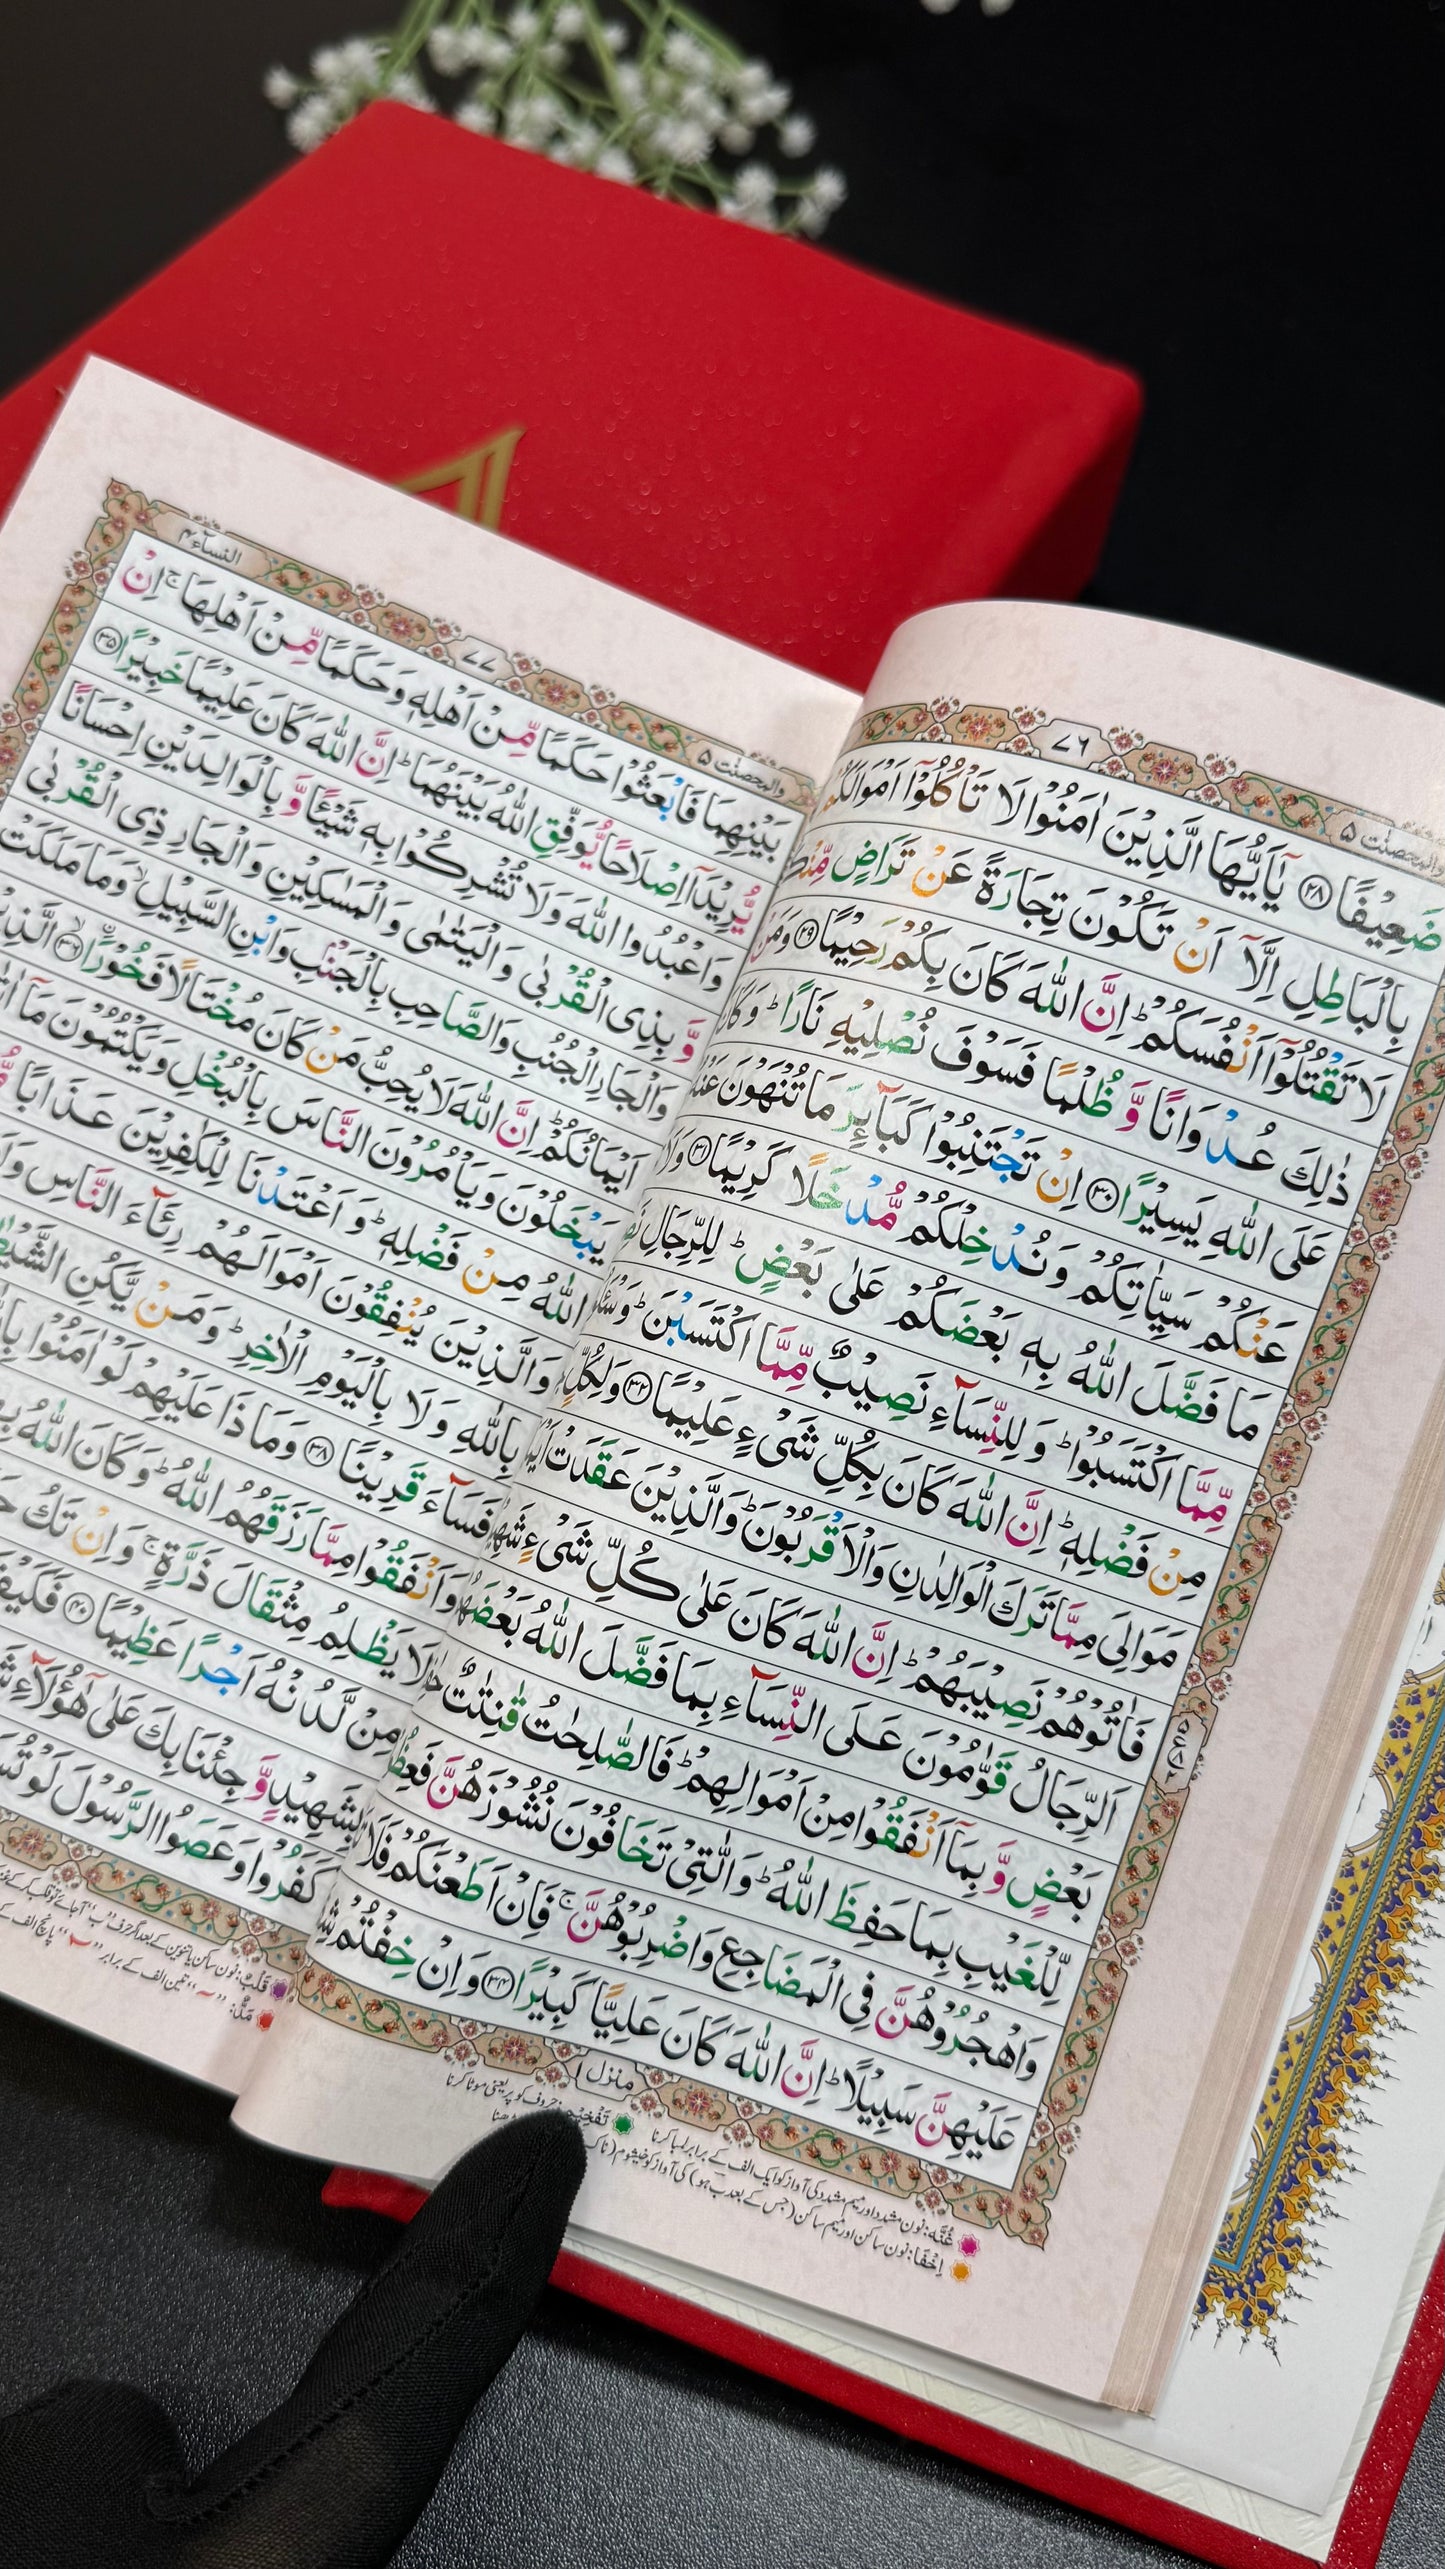 والمحصنت ۵
۷۶
ضَعِيْفًا ۲۸ يٰۤاَيُّهَا الَّذِيْنَ اٰمَنُوْا لَا تَاْكُلُوْۤا
بِالْبَاطِلِ اِلَّاۤ اَنْ تَكُوْنَ تِجَارَةً عَنْ تَرَاضٍ
لَا تَقْتُلُوْۤا اَنْفُسَكُمْ ؕ اِنَّ اللّٰهَ كَانَ بِكُمْ رَحِيْمًا ۲۹ وَمَنْ
ذٰلِكَ عُدْوَانًا وَّ ظُلْمًا فَسَوْفَ نُصْلِيْهِ نَارًا ؕ
عَلَى اللّٰهِ يَسِيْرًا ۳۰ اِنْ تَجْتَنِبُوْا كَبَآئِرَ مَا تُنْهَوْنَ
عَنْكُمْ سَيِّاٰتِكُمْ وَنُدْخِلْكُمْ مُّدْخَلًا كَرِيْمًا ۳۱ وَلَا
مَا فَضَّلَ اللّٰهُ بِهٖ بَعْضَكُمْ عَلٰى بَعْضٍ ؕ لِلرِّجَالِ
مِّمَّا اكْتَسَبُوْا ؕ وَلِلنِّسَآءِ نَصِيْبٌ مِّمَّا اكْتَسَبْنَ ؕ
مِنْ فَضْلِهٖ ؕ اِنَّ اللّٰهَ كَانَ بِكُلِّ شَىْءٍ عَلِيْمًا ۳۲ وَلِكُلٍّ
مَوَالِىَ مِمَّا تَرَكَ الْوَالِدٰنِ وَالْاَقْرَبُوْنَ ؕ وَالَّذِيْنَ عَقَدَتْ
فَاٰتُوْهُمْ نَصِيْبَهُمْ ؕ اِنَّ اللّٰهَ كَانَ عَلٰى كُلِّ شَىْءٍ
اَلرِّجَالُ قَوّٰمُوْنَ عَلَى النِّسَآءِ بِمَا فَضَّلَ اللّٰهُ
بَعْضٍ وَّ بِمَاۤ اَنْفَقُوْا مِنْ اَمْوَالِهِمْ ؕ فَالصّٰلِحٰتُ قٰنِتٰتٌ
لِّلْغَيْبِ بِمَا حَفِظَ اللّٰهُ ؕ وَالّٰتِىْ تَخَافُوْنَ نُشُوْزَهُنَّ
وَاهْجُرُوْهُنَّ فِى الْمَضَاجِعِ وَاضْرِبُوْهُنَّ ۚ فَاِنْ اَطَعْنَكُمْ فَلَا
عَلَيْهِنَّ سَبِيْلًا ؕ اِنَّ اللّٰهَ كَانَ عَلِيًّا كَبِيْرًا ۳۴ وَاِنْ خِفْتُمْ
منزل ۱
غُنَّه: نون مشدد اور میم مشدد کی آواز کو ایک الف کے برابر لمبا کرنا
تَفْخِيْم: حروف کو پُر یعنی موٹا کرنا
اِخْفَا: نون ساکن اور میم ساکن (جس کے بعد ب ہو) کی آواز کو خیشوم
النسآء ۴
۷۷
والمحصنت ۵
بَيْنِهِمَا فَابْعَثُوْا حَكَمًا مِّنْ اَهْلِهٖ وَحَكَمًا مِّنْ اَهْلِهَا ۚ اِنْ
يُّرِيْدَاۤ اِصْلَاحًا يُّوَفِّقِ اللّٰهُ بَيْنَهُمَا ؕ اِنَّ اللّٰهَ كَانَ عَلِيْمًا خَبِيْرًا ۳۵
وَاعْبُدُوا اللّٰهَ وَلَا تُشْرِكُوْا بِهٖ شَيْئًا وَّ بِالْوَالِدَيْنِ اِحْسَانًا
وَّ بِذِى الْقُرْبٰى وَالْيَتٰمٰى وَالْمَسٰكِيْنِ وَالْجَارِ ذِى الْقُرْبٰى
وَالْجَارِ الْجُنُبِ وَالصَّاحِبِ بِالْجَنْۢبِ وَابْنِ السَّبِيْلِ ۙ وَمَا مَلَكَتْ
اَيْمَانُكُمْ ؕ اِنَّ اللّٰهَ لَا يُحِبُّ مَنْ كَانَ مُخْتَالًا فَخُوْرًا ۳۶
يَبْخَلُوْنَ وَيَاْمُرُوْنَ النَّاسَ بِالْبُخْلِ وَيَكْتُمُوْنَ مَاۤ
اللّٰهُ مِنْ فَضْلِهٖ ؕ وَاَعْتَدْنَا لِلْكٰفِرِيْنَ عَذَابًا
وَالَّذِيْنَ يُنْفِقُوْنَ اَمْوَالَهُمْ رِئَآءَ النَّاسِ
بِاللّٰهِ وَلَا بِالْيَوْمِ الْاٰخِرِ ؕ وَمَنْ يَّكُنِ
فَسَآءَ قَرِيْنًا ۳۸ وَمَاذَا عَلَيْهِمْ لَوْ اٰمَنُوْا
وَاَنْفَقُوْا مِمَّا رَزَقَهُمُ اللّٰهُ ؕ وَكَانَ اللّٰهُ
لَا يَظْلِمُ مِثْقَالَ ذَرَّةٍ ۚ وَاِنْ تَكُ
مِنْ لَّدُنْهُ اَجْرًا عَظِيْمًا ۴۰ فَكَيْفَ
بِشَهِيْدٍ وَّجِئْنَا بِكَ عَلٰى هٰۤؤُلَآءِ
كَفَرُوْا وَعَصَوُا الرَّسُوْلَ لَوْ
قلب: نون ساکن یا تنوین کے بعد اگر حرف "ب" آجائے تو
مَدّ: "~" تین الف کے برابر "~" پانچ الف کے